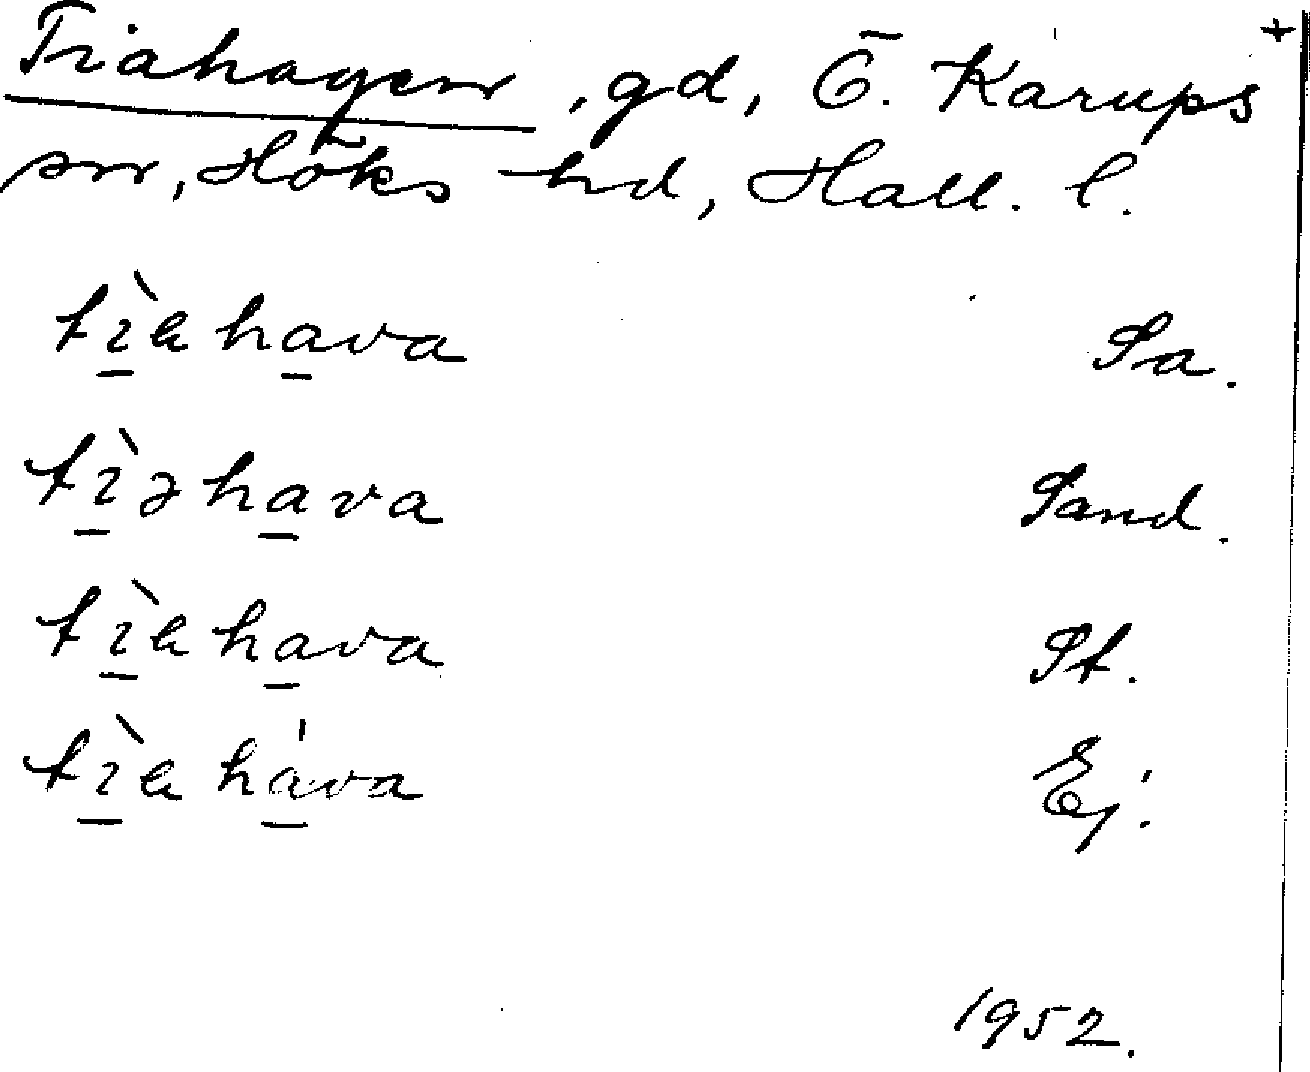 Tiahagen, gd, Ö. Karups +
sn, Höks hd, Hall. l.
tìɐhava Sa.
tìəhava Sand.
tìɐhava St.
tìɐháva Ej.
1952.